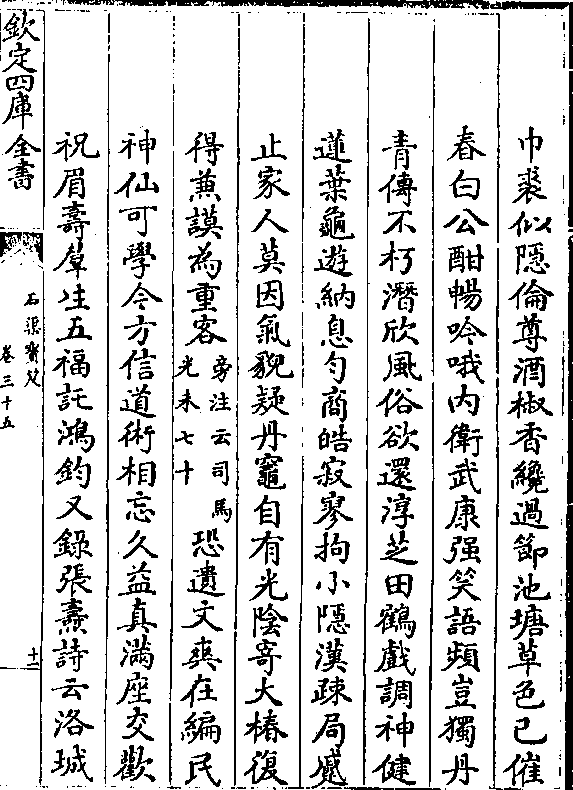 巾裘似隱倫尊酒椒香纔過節池塘草色已催
春白公酣暢吟哦内衛武康强笑語頻豈獨丹
青傳不朽潛欣風俗欲還淳芝田鶴戲調神健
蓮葉龜遊納息勻商皓寂寥拘小隱漢疎局戚
止家人莫因氣貌疑丹竈自有光陰寄大椿復
得兼謨為重客旁注云司馬光未七十恐遺文爽在編民
神仙可學今方信道術相忘久益真滿座交歡
祝眉壽羣生五福託鴻鈞又錄張燾詩云洛城
欽定四庫全書
石渠寶笈
卷三十五
十一